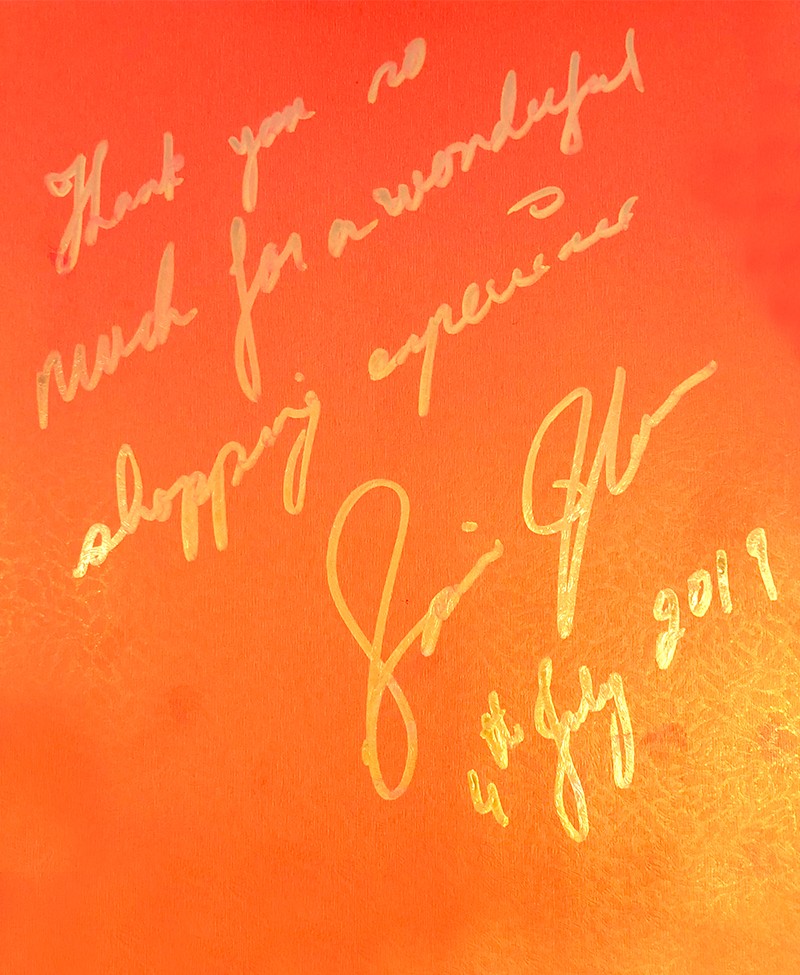 Thank you so
much for a wonderful
shopping experience
4th July 2019